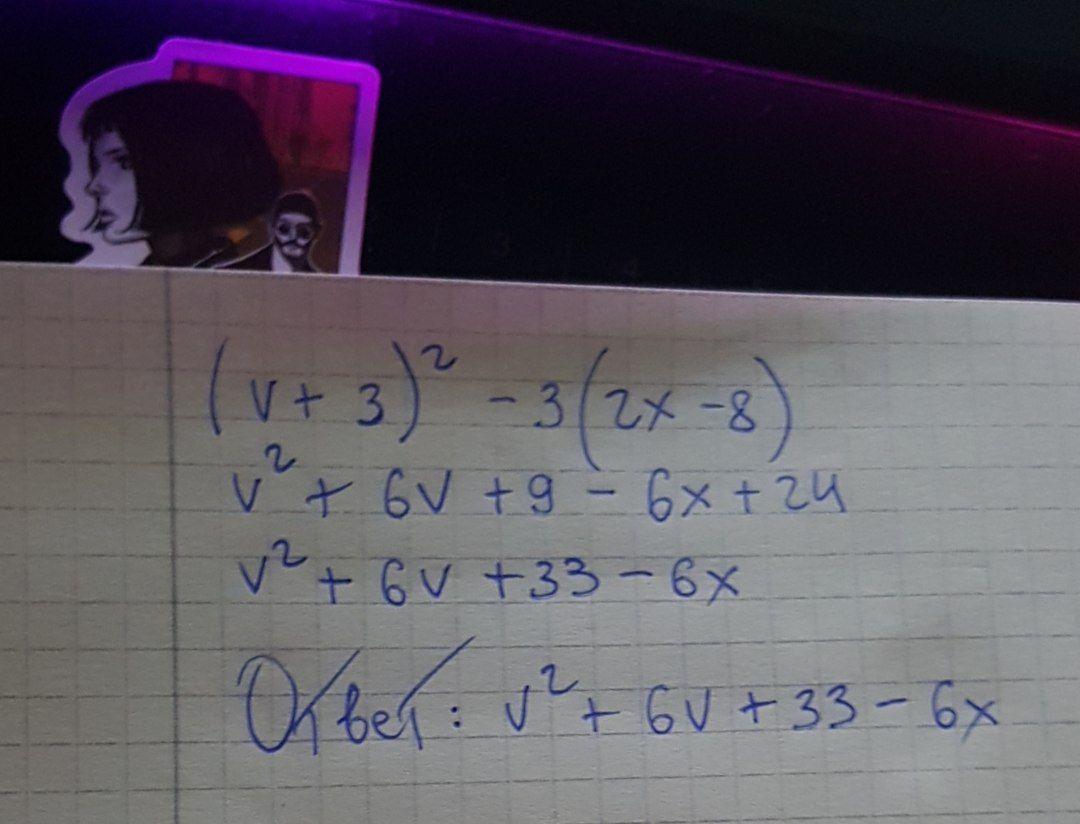 (v + 3)² - 3(2x - 8)
v² + 6v + 9 - 6x + 24
v² + 6v + 33 - 6x
Ответ: v² + 6v + 33 - 6x